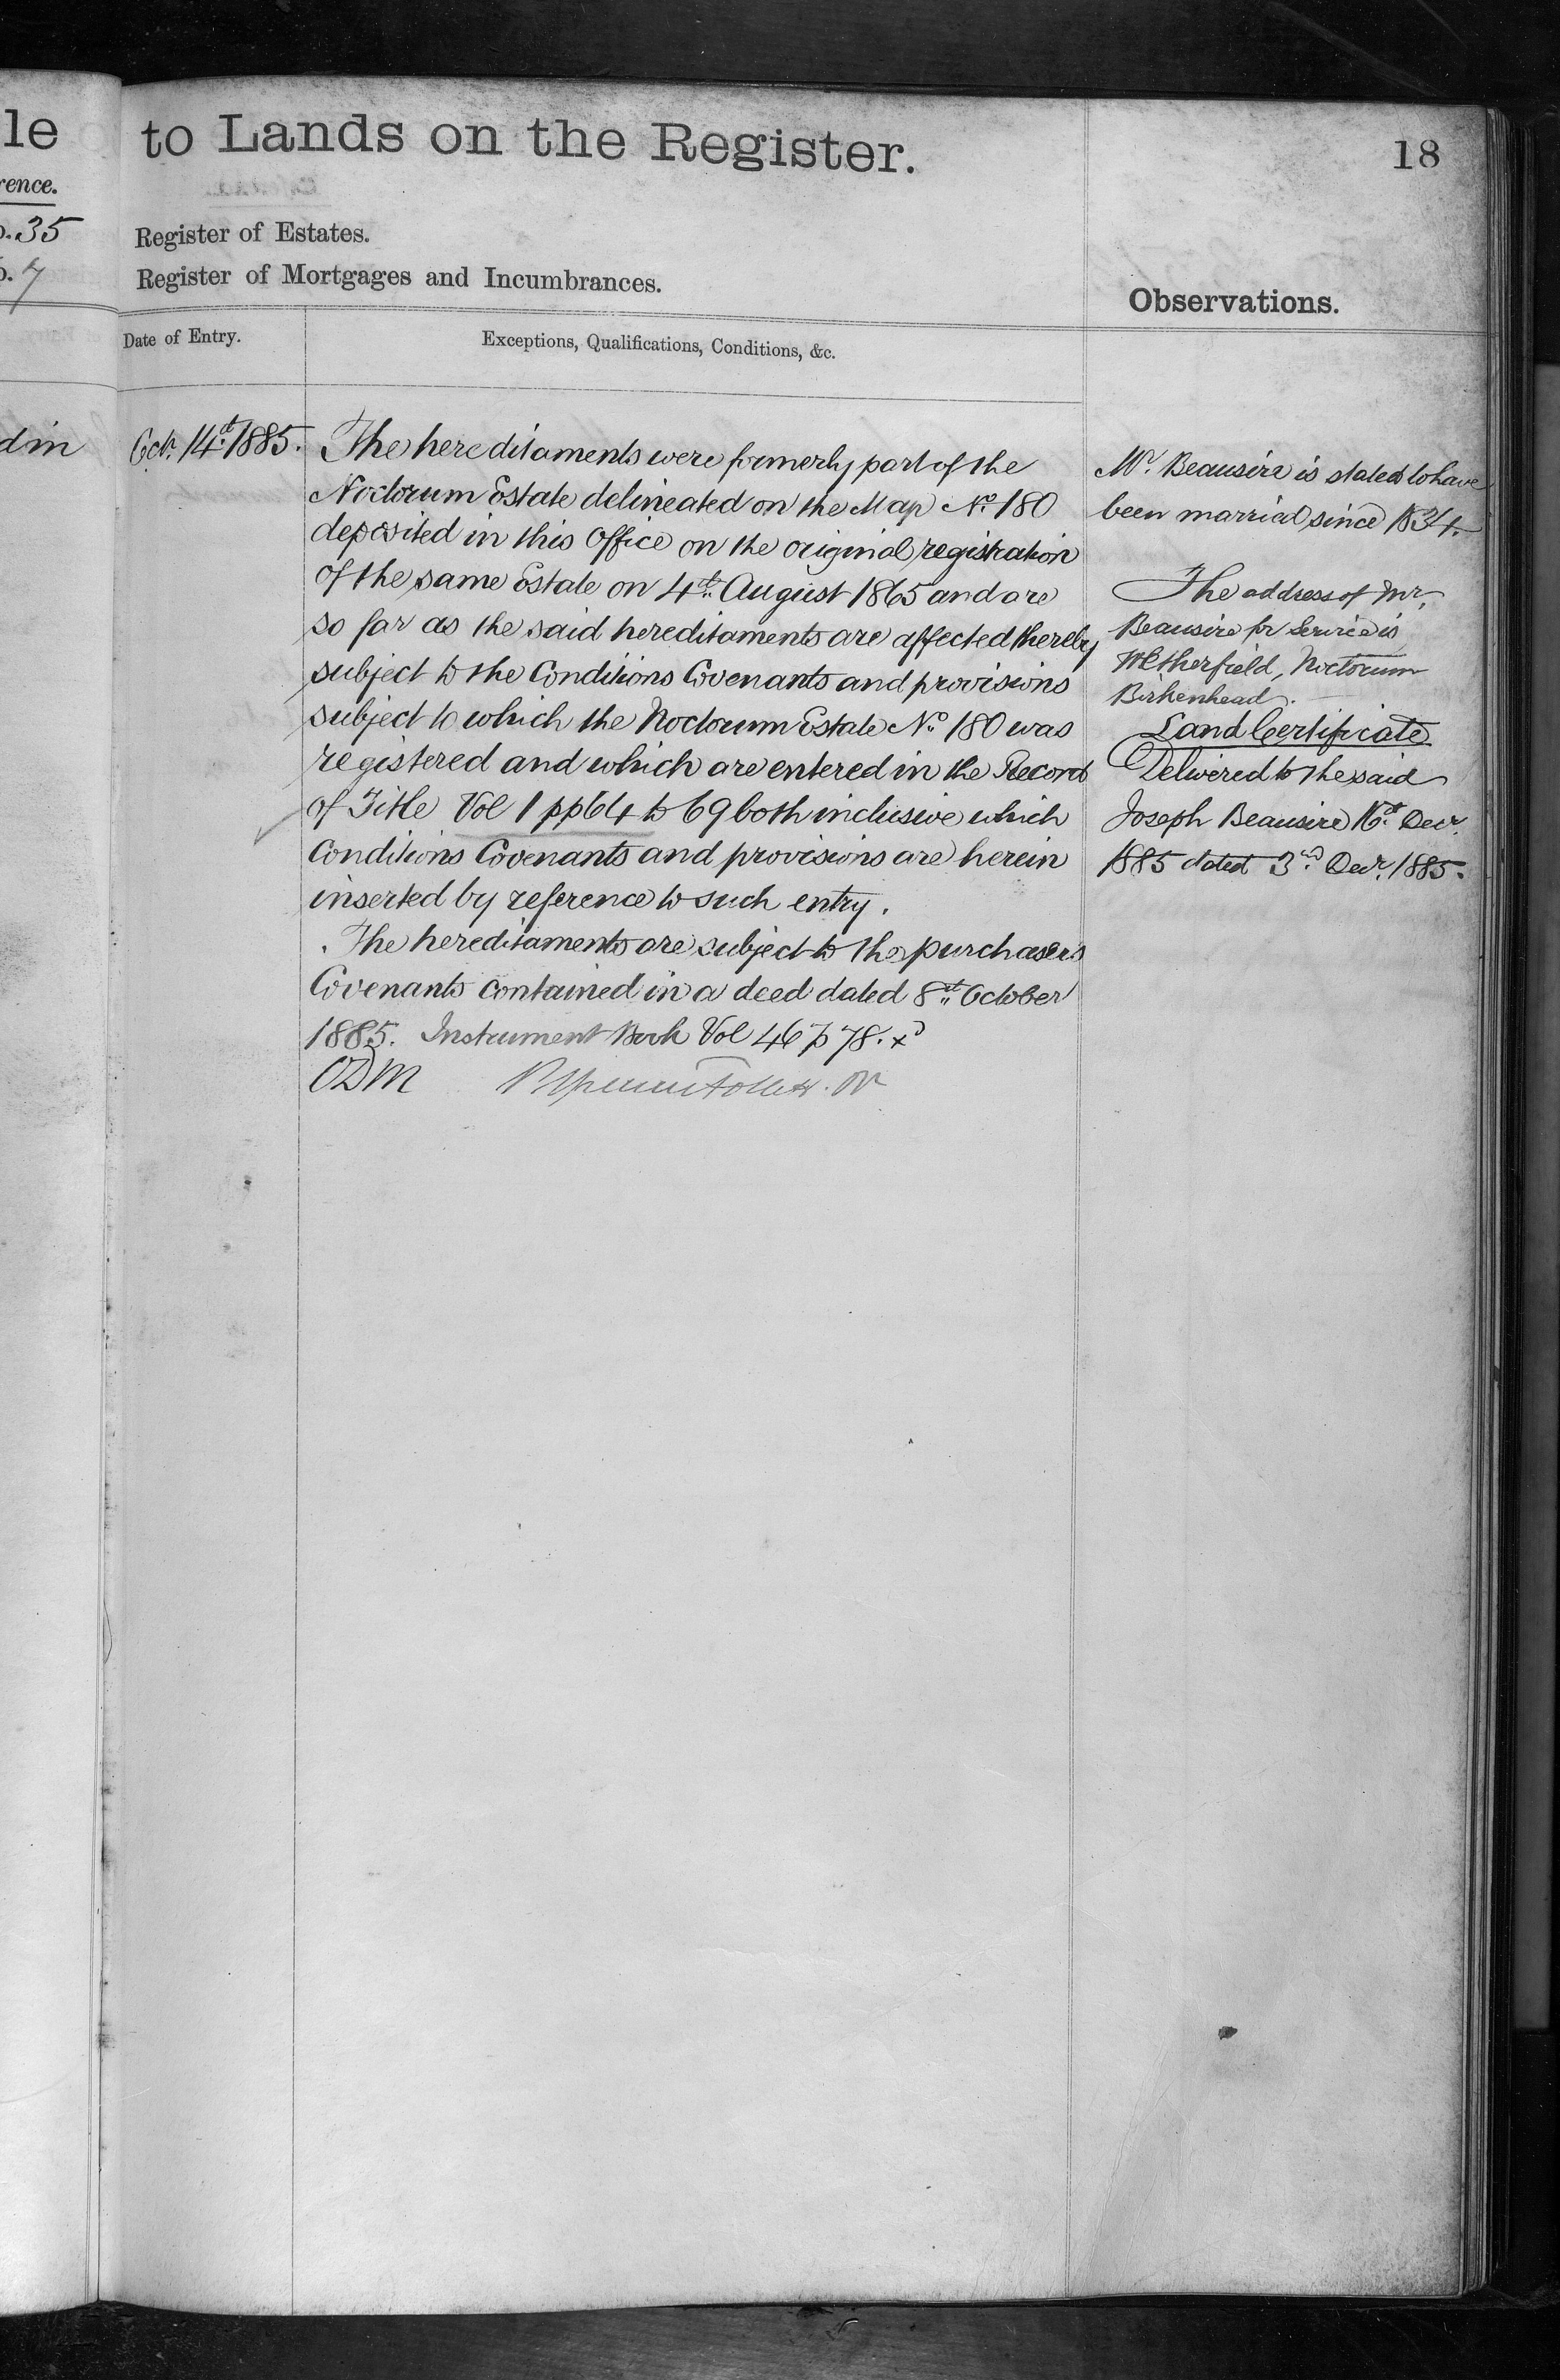 le
to Lands on the Register.
18
rence.
35
Register of Estates.
7
Register of Mortgages and Incumbrances.
Observations.
Date of Entry.
Exceptions, Qualifications, Conditions, &c.
d in
Octr. 14th 1885.
The hereditaments were formerly part of the
Noctorum Estate delineated on the Map No. 180
deposited in this Office on the original registration
of the same Estate on 4th August 1865 and are
so far as the said hereditaments are affected thereby
subject to the Conditions Covenants and provisions
subject to which the Noctorum Estate No. 180 was
registered and which are entered in the Record
of Title Vol 1 pp 64 to 69 both inclusive which
Conditions Covenants and provisions are herein
inserted by reference to such entry.
The hereditaments are subject to the purchasers
Covenants contained in a deed dated 8th October
1885. Instrument Book Vol 46 p 78.
Mr. Beausire is stated to have
been married since 1834.
The address of Mr.
Beausire for Service is
Wetherfield, Noctorum
Birkenhead.
Land Certificate
Delivered to the said
Joseph Beausire 16th Decr.
1885 dated 3rd Decr. 1885.